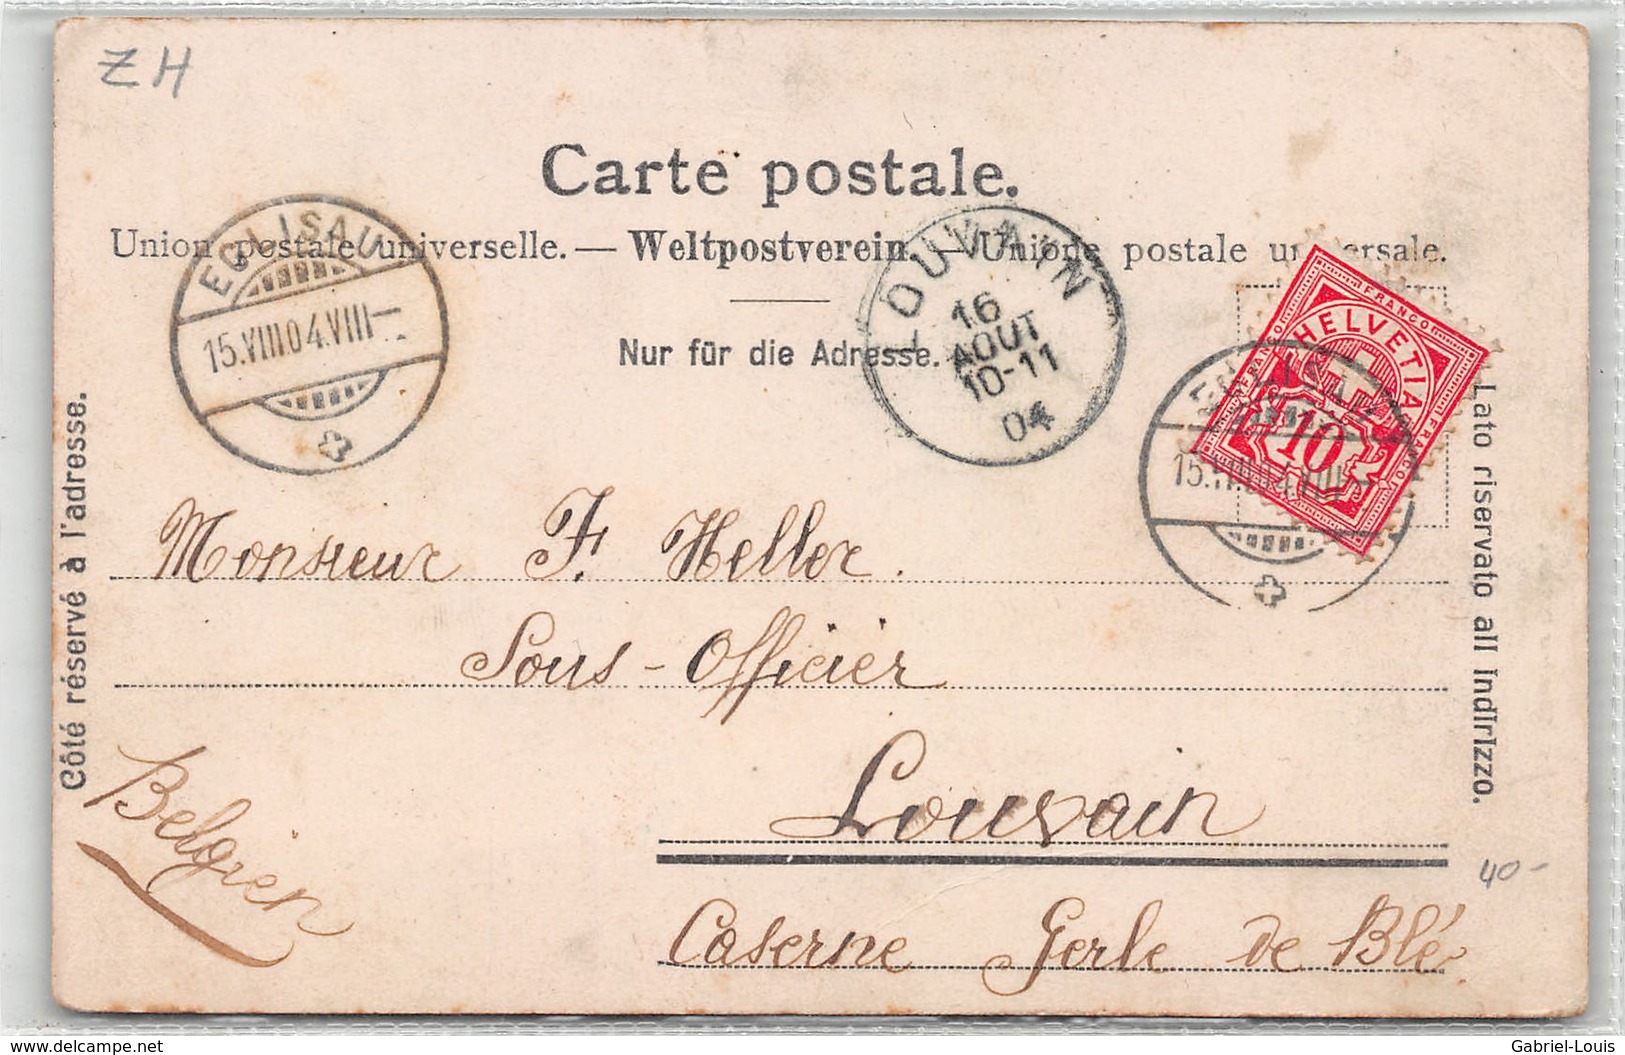 ZH
Carte postale.
Union postale universelle. — Weltpostverein. — Unione postale universale.
Nur für die Adresse.
EGLISAU
15.VIII.04.VIII—
LOUVAIN
16
AOUT
10-11
04
FRANCO
FRANCO
FRANCO
HELVETIA
10
EGLISAU
15.VIII.04.VIII
Côté réservé à l'adresse.
Lato riservato all Indirizzo.
Monsieur F. Heller.
Sous-Officier
Louvain
Belgien
40-
Caserne Gerle de Blé
delcampe.net
Gabriel-Louis